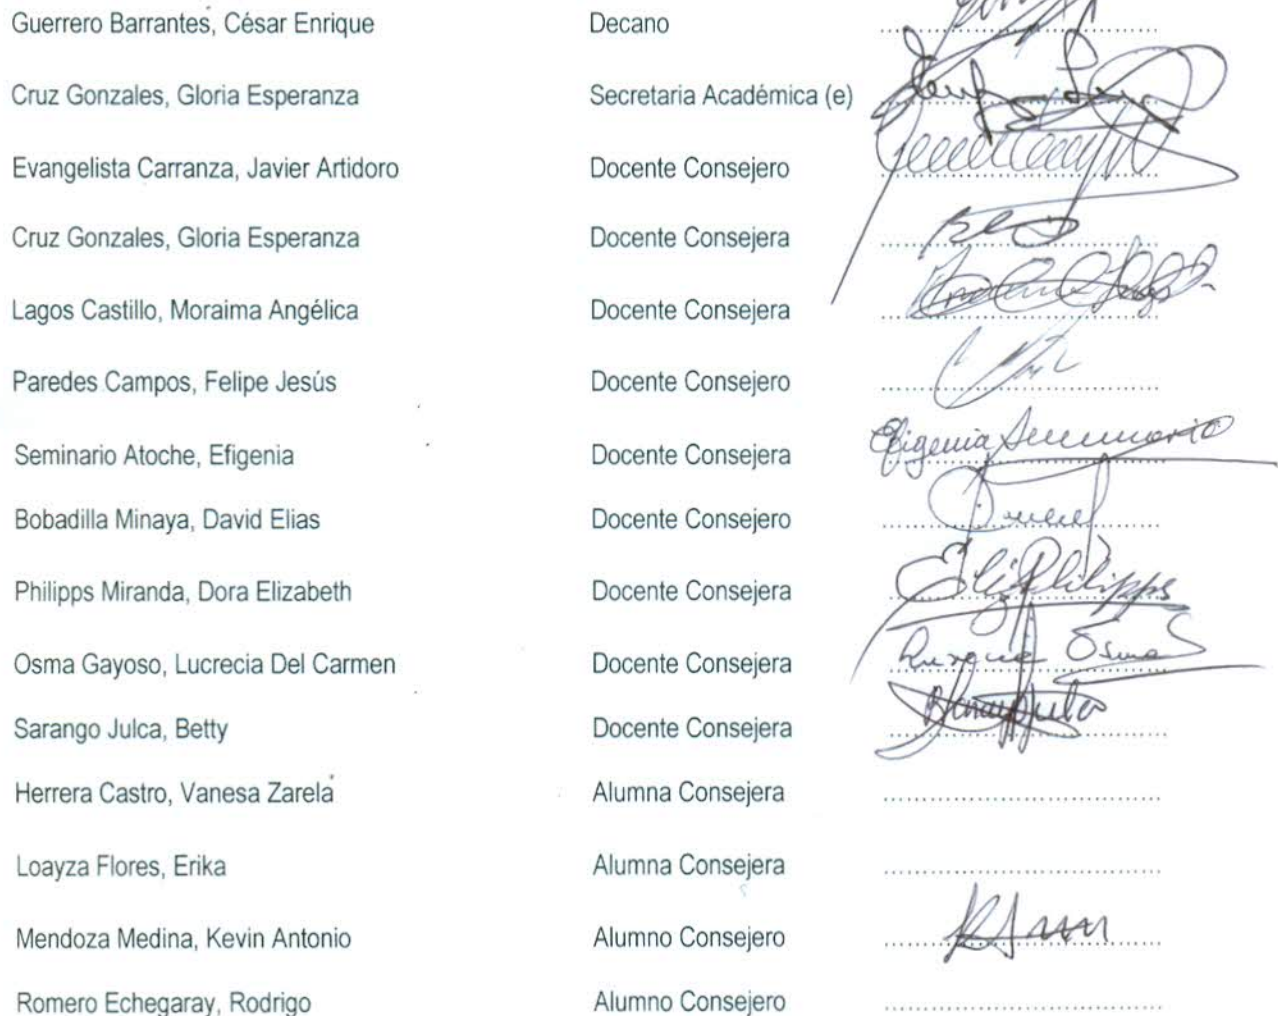 Guerrero Barrantes, César Enrique Decano
Cruz Gonzales, Gloria Esperanza Secretaria Académica (e)
Evangelista Carranza, Javier Artidoro Docente Consejero
Cruz Gonzales, Gloria Esperanza Docente Consejera
Lagos Castillo, Moraima Angélica Docente Consejera
Paredes Campos, Felipe Jesús Docente Consejero
Seminario Atoche, Efigenia Docente Consejera Efigenia Seminario
Bobadilla Minaya, David Elias Docente Consejero
Philipps Miranda, Dora Elizabeth Docente Consejera Eliz Philipps
Osma Gayoso, Lucrecia Del Carmen Docente Consejera Osma
Sarango Julca, Betty Docente Consejera
Herrera Castro, Vanesa Zarela Alumna Consejera
Loayza Flores, Erika Alumna Consejera
Mendoza Medina, Kevin Antonio Alumno Consejero
Romero Echegaray, Rodrigo Alumno Consejero